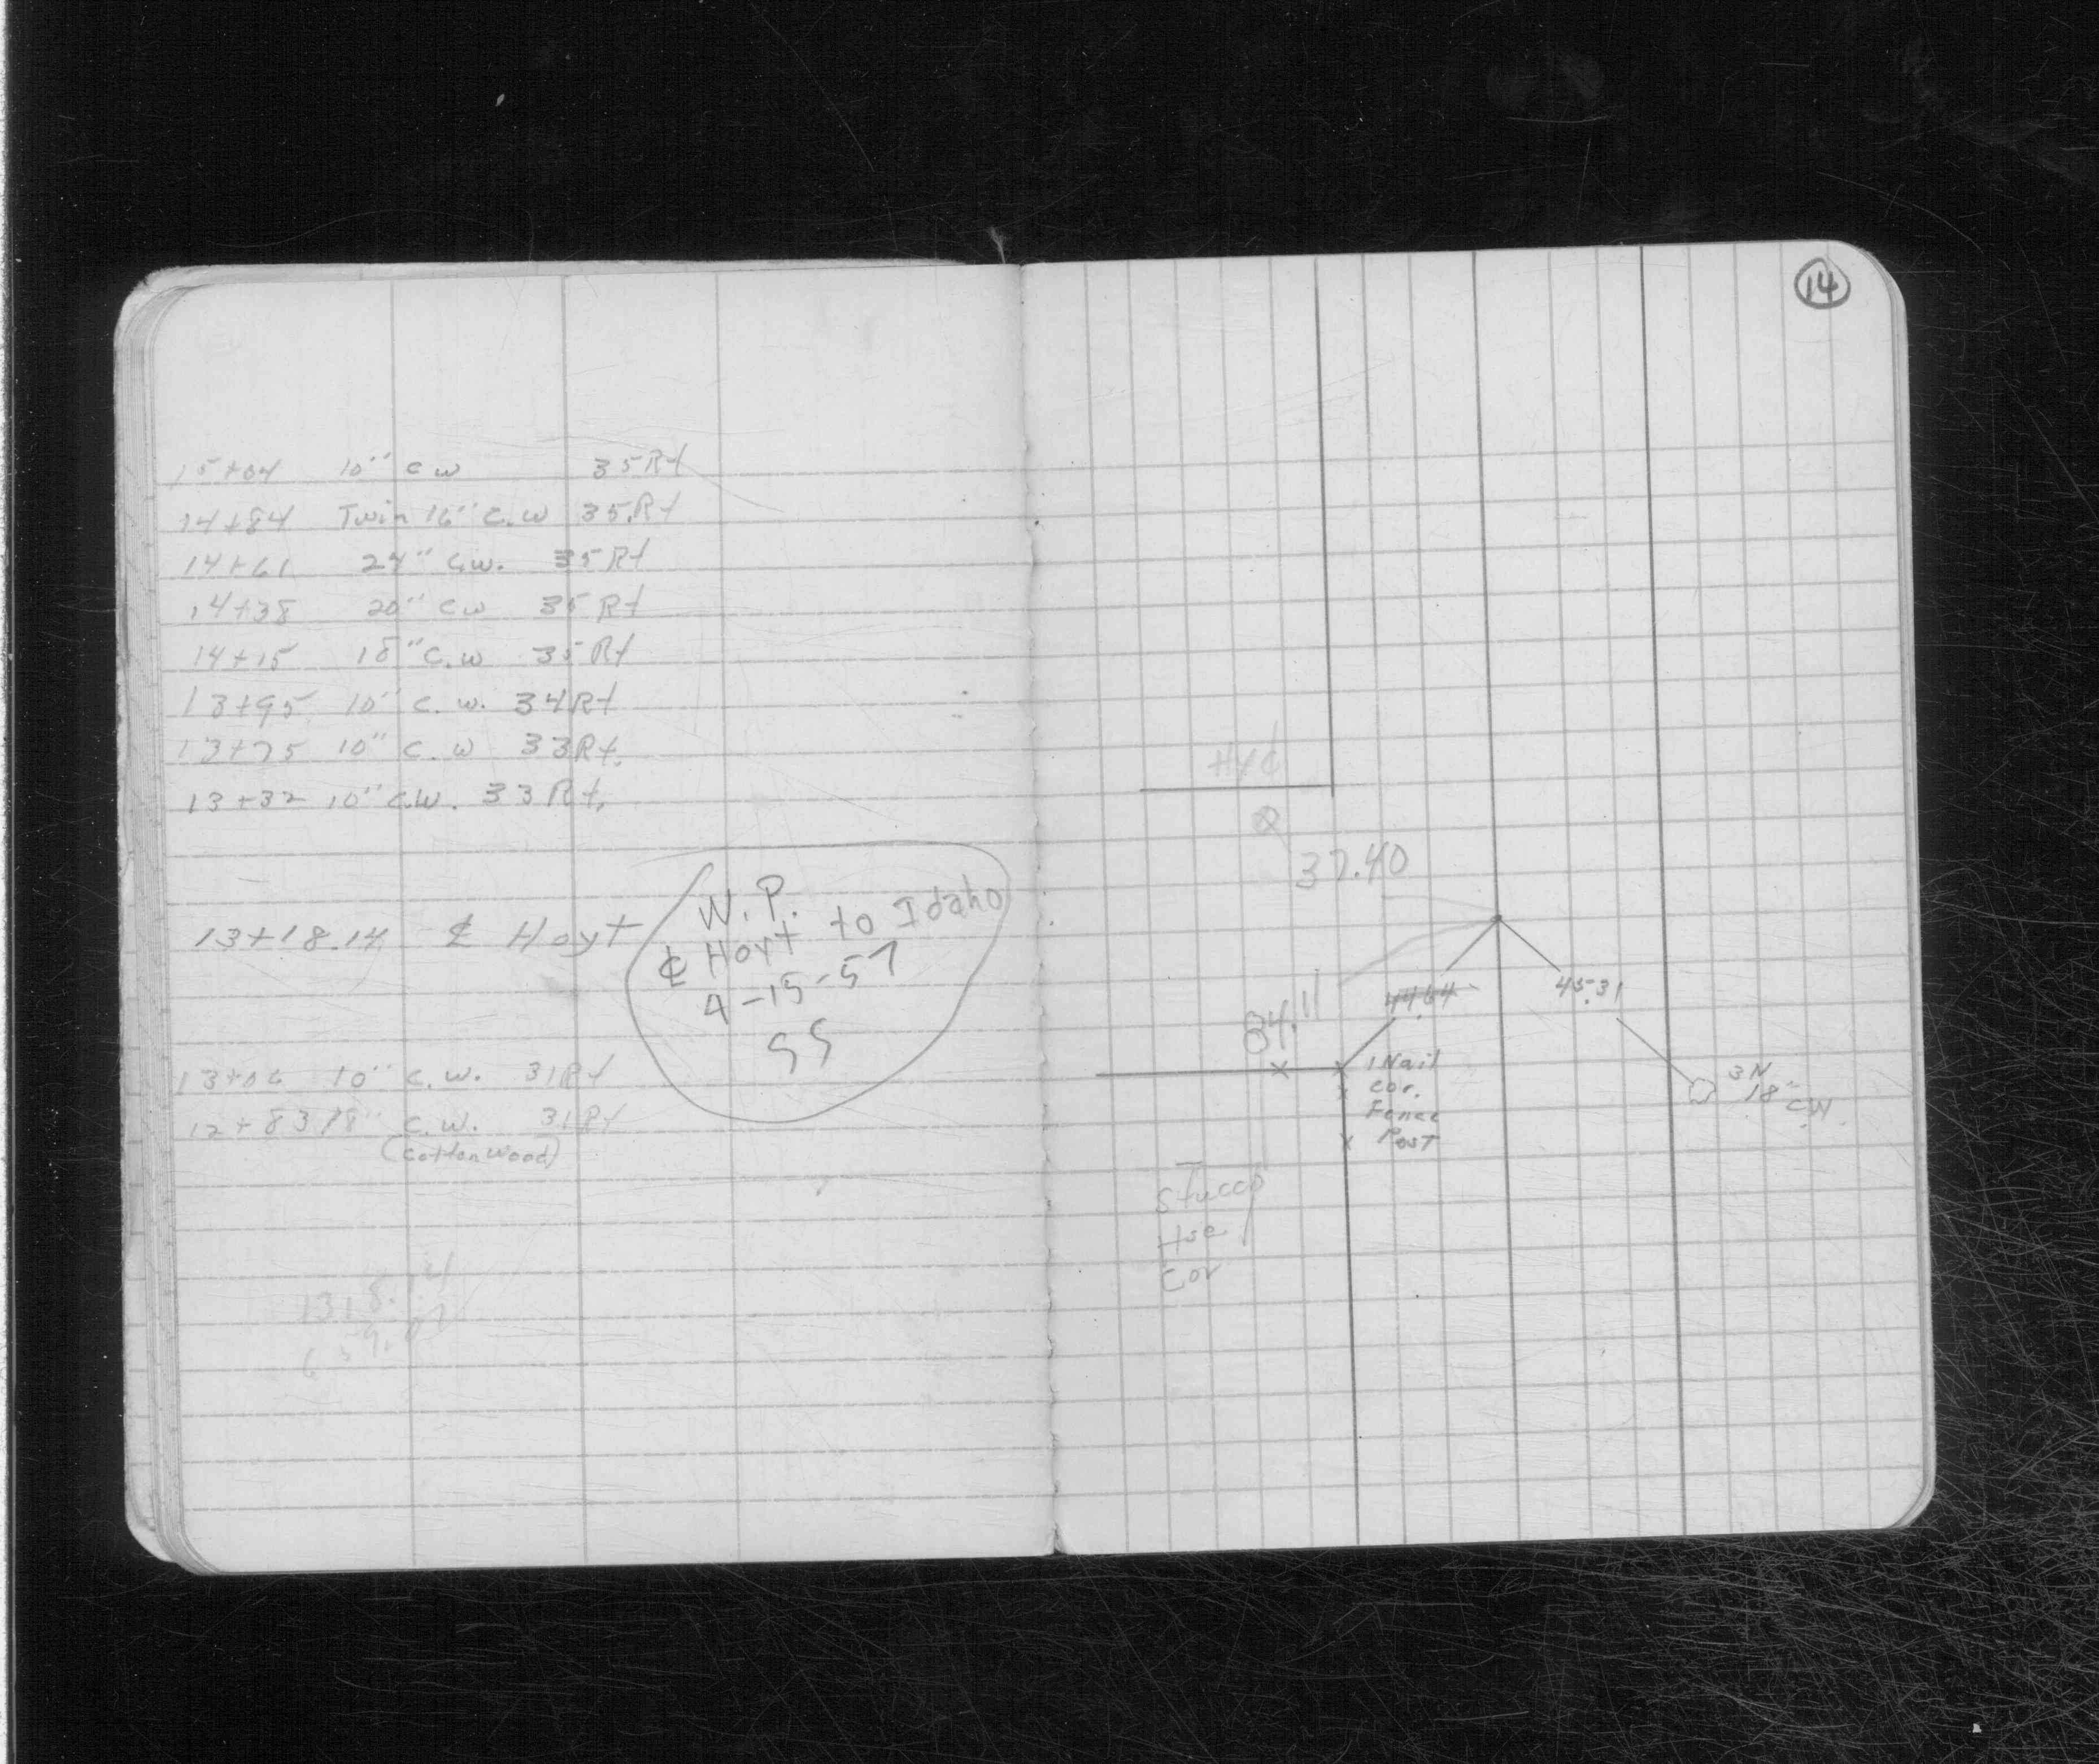 15+04 10" c w 35 Rt
14+84 Twin 16" c.w 35 Rt
14+61 24" c.w. 35 Rt
14+38 20" cw 35 Rt
14+15 18" c.w 35 Rt
13+95 10" c. w. 34 Rt
13+75 10" c. w 33 Rt.
13+32 10" c.w. 33 Rt.
13+18.14 ℄ Hoyt
W. P.
℄ Hoyt to Idaho
4-15-57
SS
13+06 10" c. w. 31 Rt
12+83 18" c.w. 31 Rt
(cottonwood)
1318.14
14
Hyd
37.40
44.64
45.31
84.11
1 Nail
cor.
Fence
Post
3N
18"
CW
Stucco
Hse
Cor